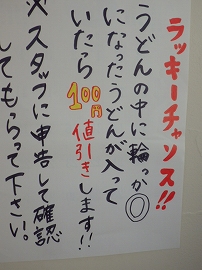 ラッキーチャンス!!
うどんの中に輪っか◎
になったうどんが入って
いたら100円値引きします!!
※スタッフに申告して確認
してもらって下さい。